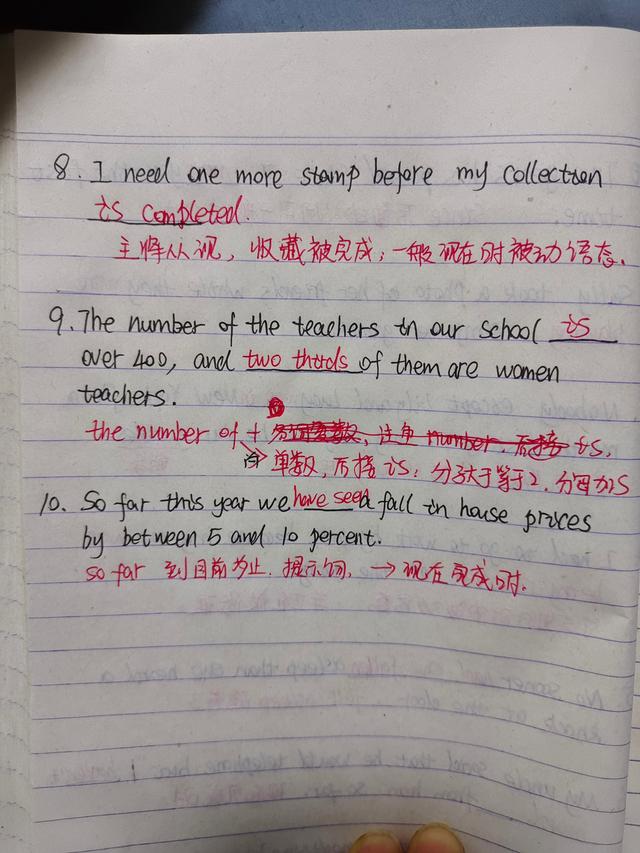 8. I need one more stamp before my collection
is completed.
主将从现，收藏被完成，一般现在时被动语态.
9. The number of the teachers in our school is
over 400, and two thirds of them are women
teachers.
the number of +
单数, 后接 is, 分子大于等于2, 分母加S
10. So far this year we have seen a fall in house prices
by between 5 and 10 percent.
so far 到目前为止. 提示词, → 现在完成时.